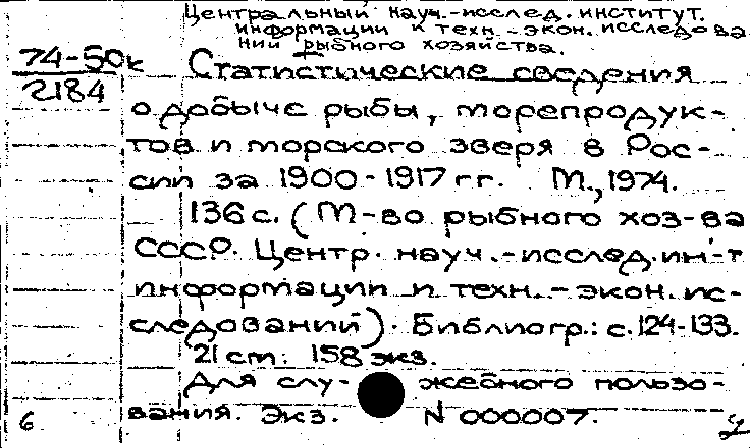 Центральный науч.-исслед. институт.
информации и техн.-экон. исследова
ний рыбного хозяйства.
74-50к
2184
Статистические сведения
о добыче рыбы, морепродук-
тов и морского зверя в Рос-
сии за 1900-1917 гг. М., 1974.
136 с. (М-во рыбного хоз-ва
СССР. Центр. науч.-исслед. ин-т
информации и техн.-экон. ис-
следований). Библиогр.: с. 124-133.
21 см. 158 экз.
Для слу- жебного пользо-
вания. Экз. N 000007.
6